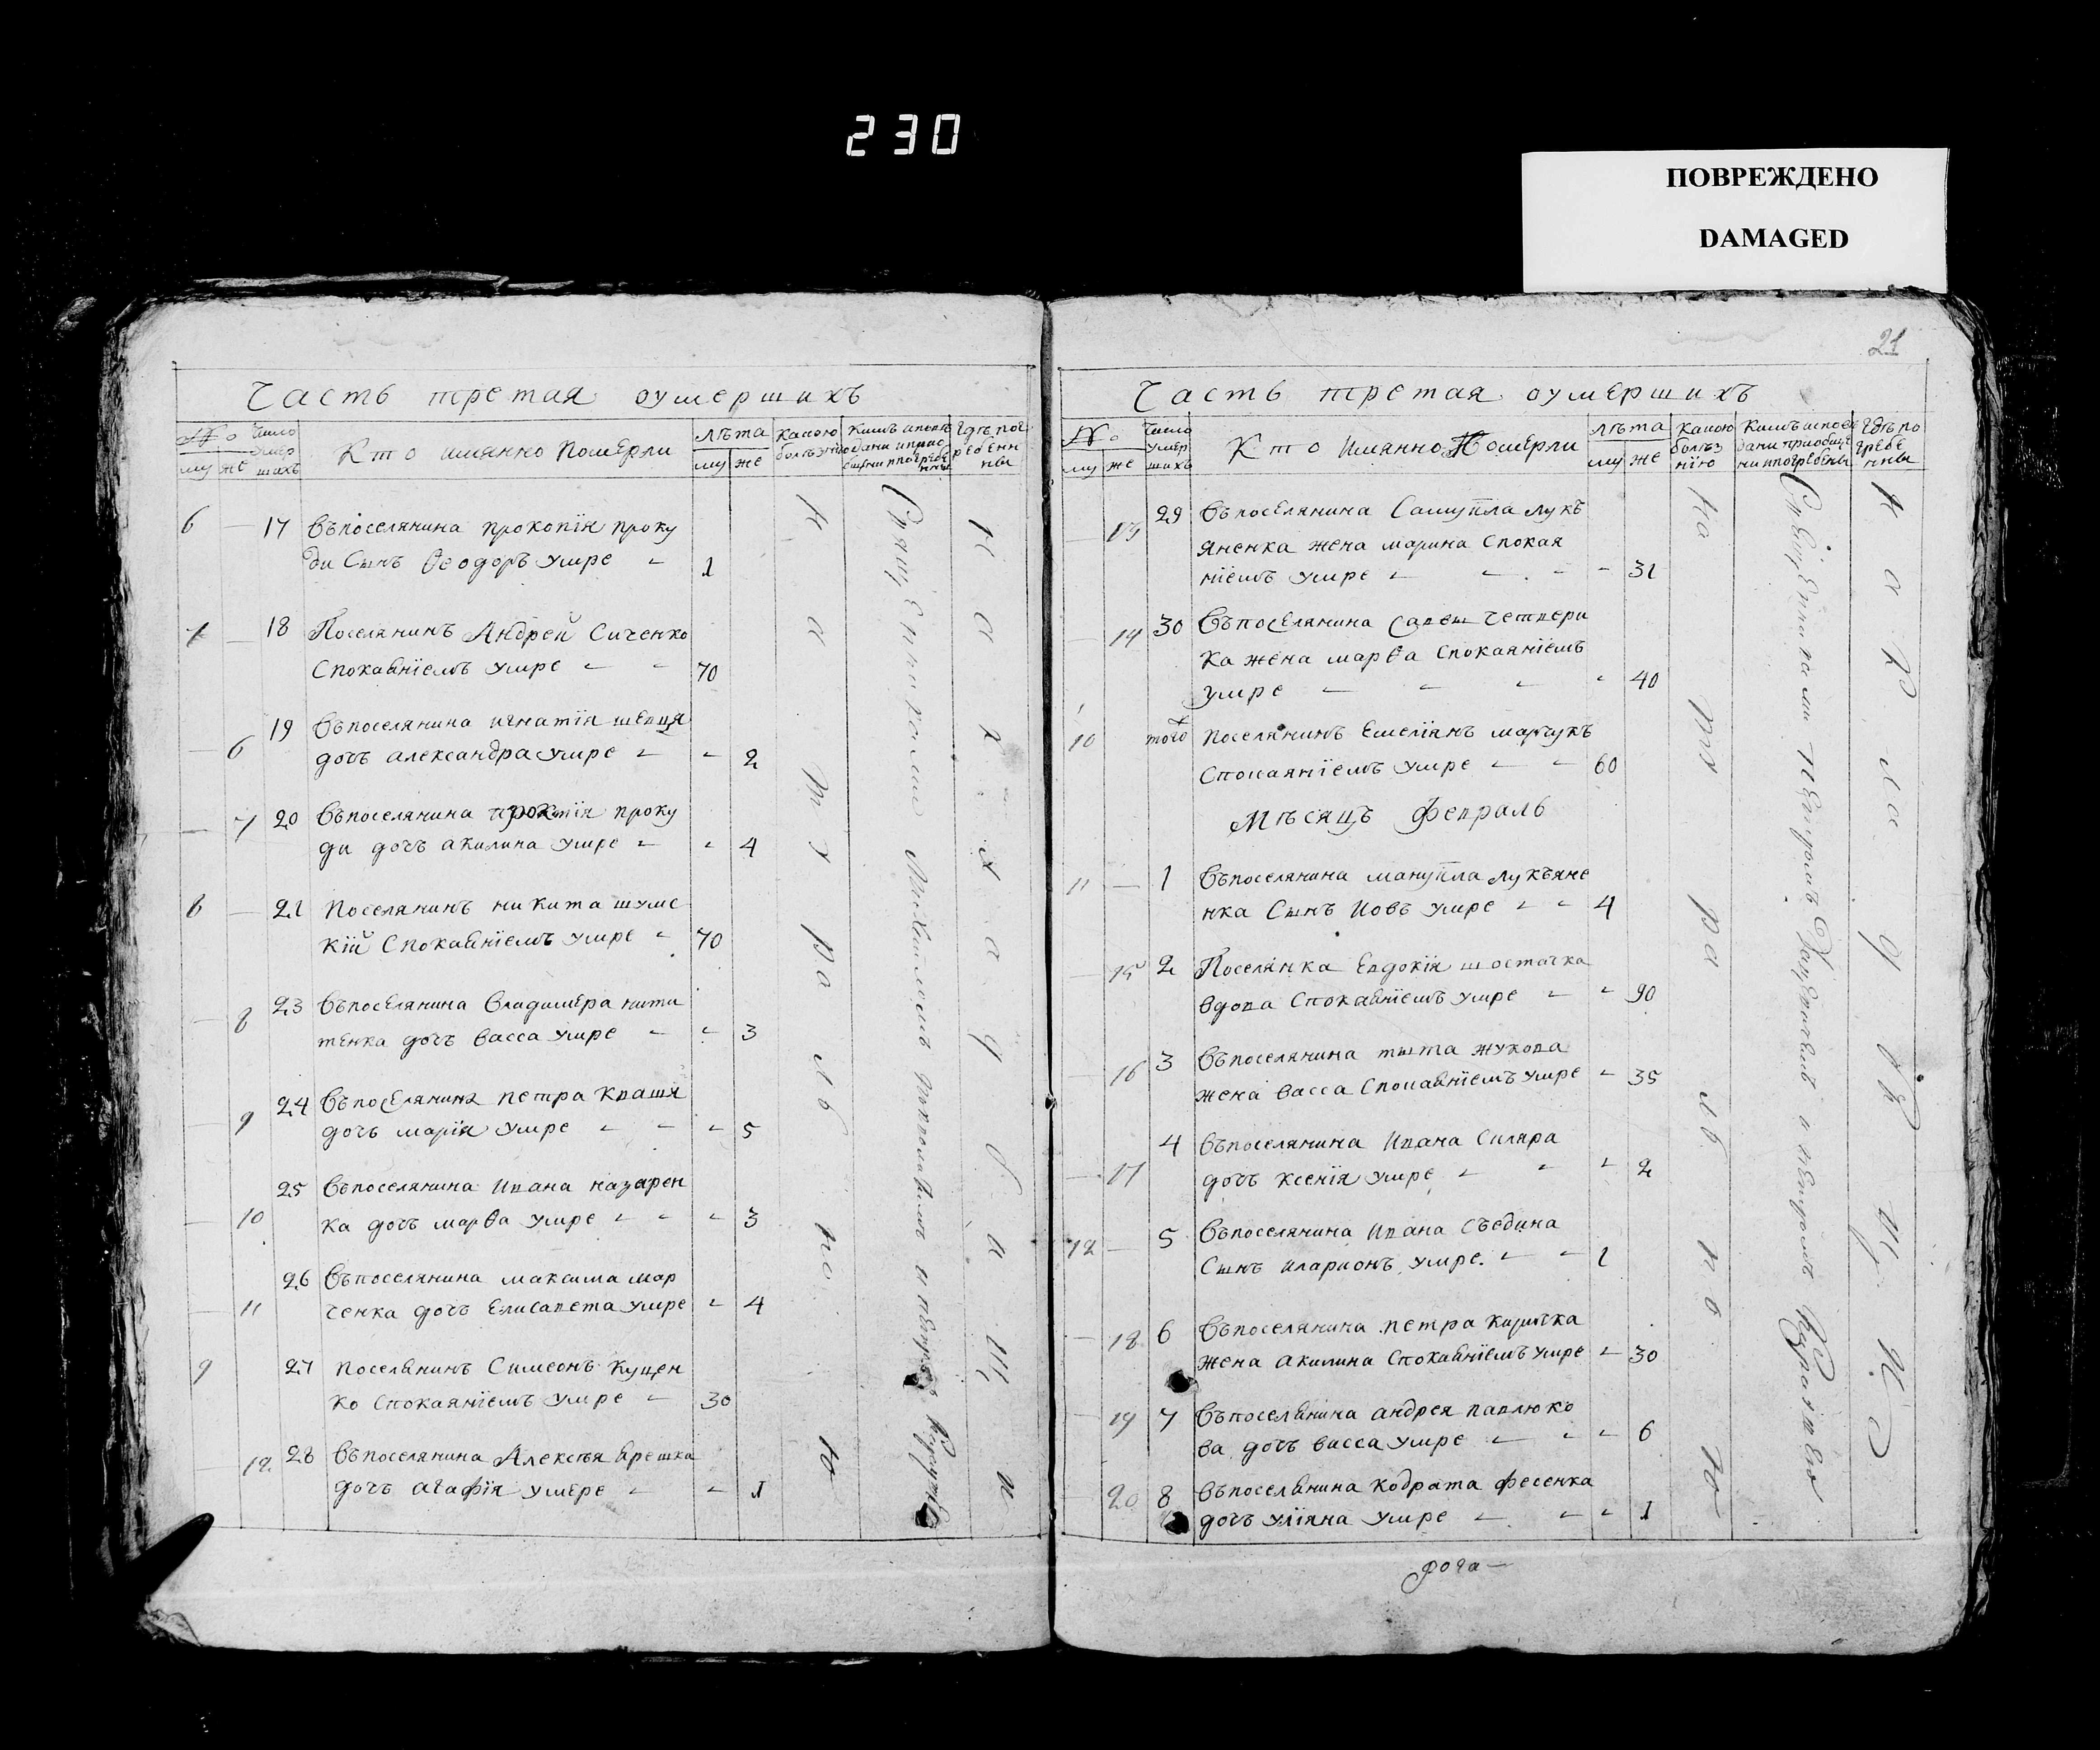 230
ПОВРЕЖДЕНО
DAMAGED
Часть третая оумершихъ
№ Число умер шихъ
Кто имянно Померли
лѣта
Какою болѣзнію
му же
му же
6 — 17 Въпоселянина прокопія проку
ди Сынъ Ѳеодоръ умре 1
7 — 18 Поселянинъ Андрей Сиченко
Спокаяніемъ умре 70
— 6 19 Въпоселянина игнатія шевця
дочъ александра умре 2
— 7 20 Въпоселянина прокопія проку
ди дочъ акилина умре 4
8 — 21 Поселянинъ никита шумс
кій Спокаяніемъ умре 70
— 8 23 Въпоселянина Владимера ники
тенка дочъ васса умре 3
— 9 24 Въпоселянина петра кваши
дочъ марія умре 5
— 10 25 Въпоселянина Ивана назарен
ка дочъ марѳа умре 3
— 11 26 Въпоселянина максима мар
ченка дочъ Елисавета умре 4
9 27 поселянинъ Симеонъ Куцен
ко Спокаяніемъ умре 30
— 12 28 Въпоселянина Алексѣя
дочъ агафія умере 1
Катаральною
Священникомъ
Карла
21
Часть третая оумершихъ
№ Число умер шихъ
Кто Имянно Померли
лѣта
Какою болѣз нію
му же
му же
— 13 29 Въпоселянина Самуила лукъ
яненка жена марина Спокая
ніемъ умре 31
— 14 30 Въпоселянина Савы четвери
ка жена марѳа Спокаяніемъ
умре 40
10 того поселянинъ Емеліянъ марчукъ
Спокаяніемъ умре 60
Мѣсяцъ Февраль
11 — 1 Въпоселянина мануила лукъяне
нка Сынъ Иовъ умре 4
— 15 2 Поселянка Евдокія шостачка
вдова Спокаяніемъ умре 90
— 16 3 Въпоселянина тита жукова
жена васса Спокаяніемъ умре 35
— 17 4 Въпоселянина Ивана Скляра
дочъ ксенія умре 2
12 — 5 Въпоселянина Ивана Съедина
Сынъ иларионъ умре 1
— 18 6 Въпоселянина петра
жена акилина Спокаяніемъ умре 30
— 19 7 Въпоселянина андрея павлюко
ва дочъ васса умре 6
— 20 8 Въпоселянина кодрата фесенка
дочъ уліяна умре 1
Катаральною
Священниками петромъ и петромъ